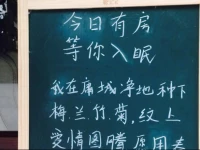 今日有房
等你入眠
我在庸城净地种下
梅.兰.竹.菊,纹上
爱情图腾